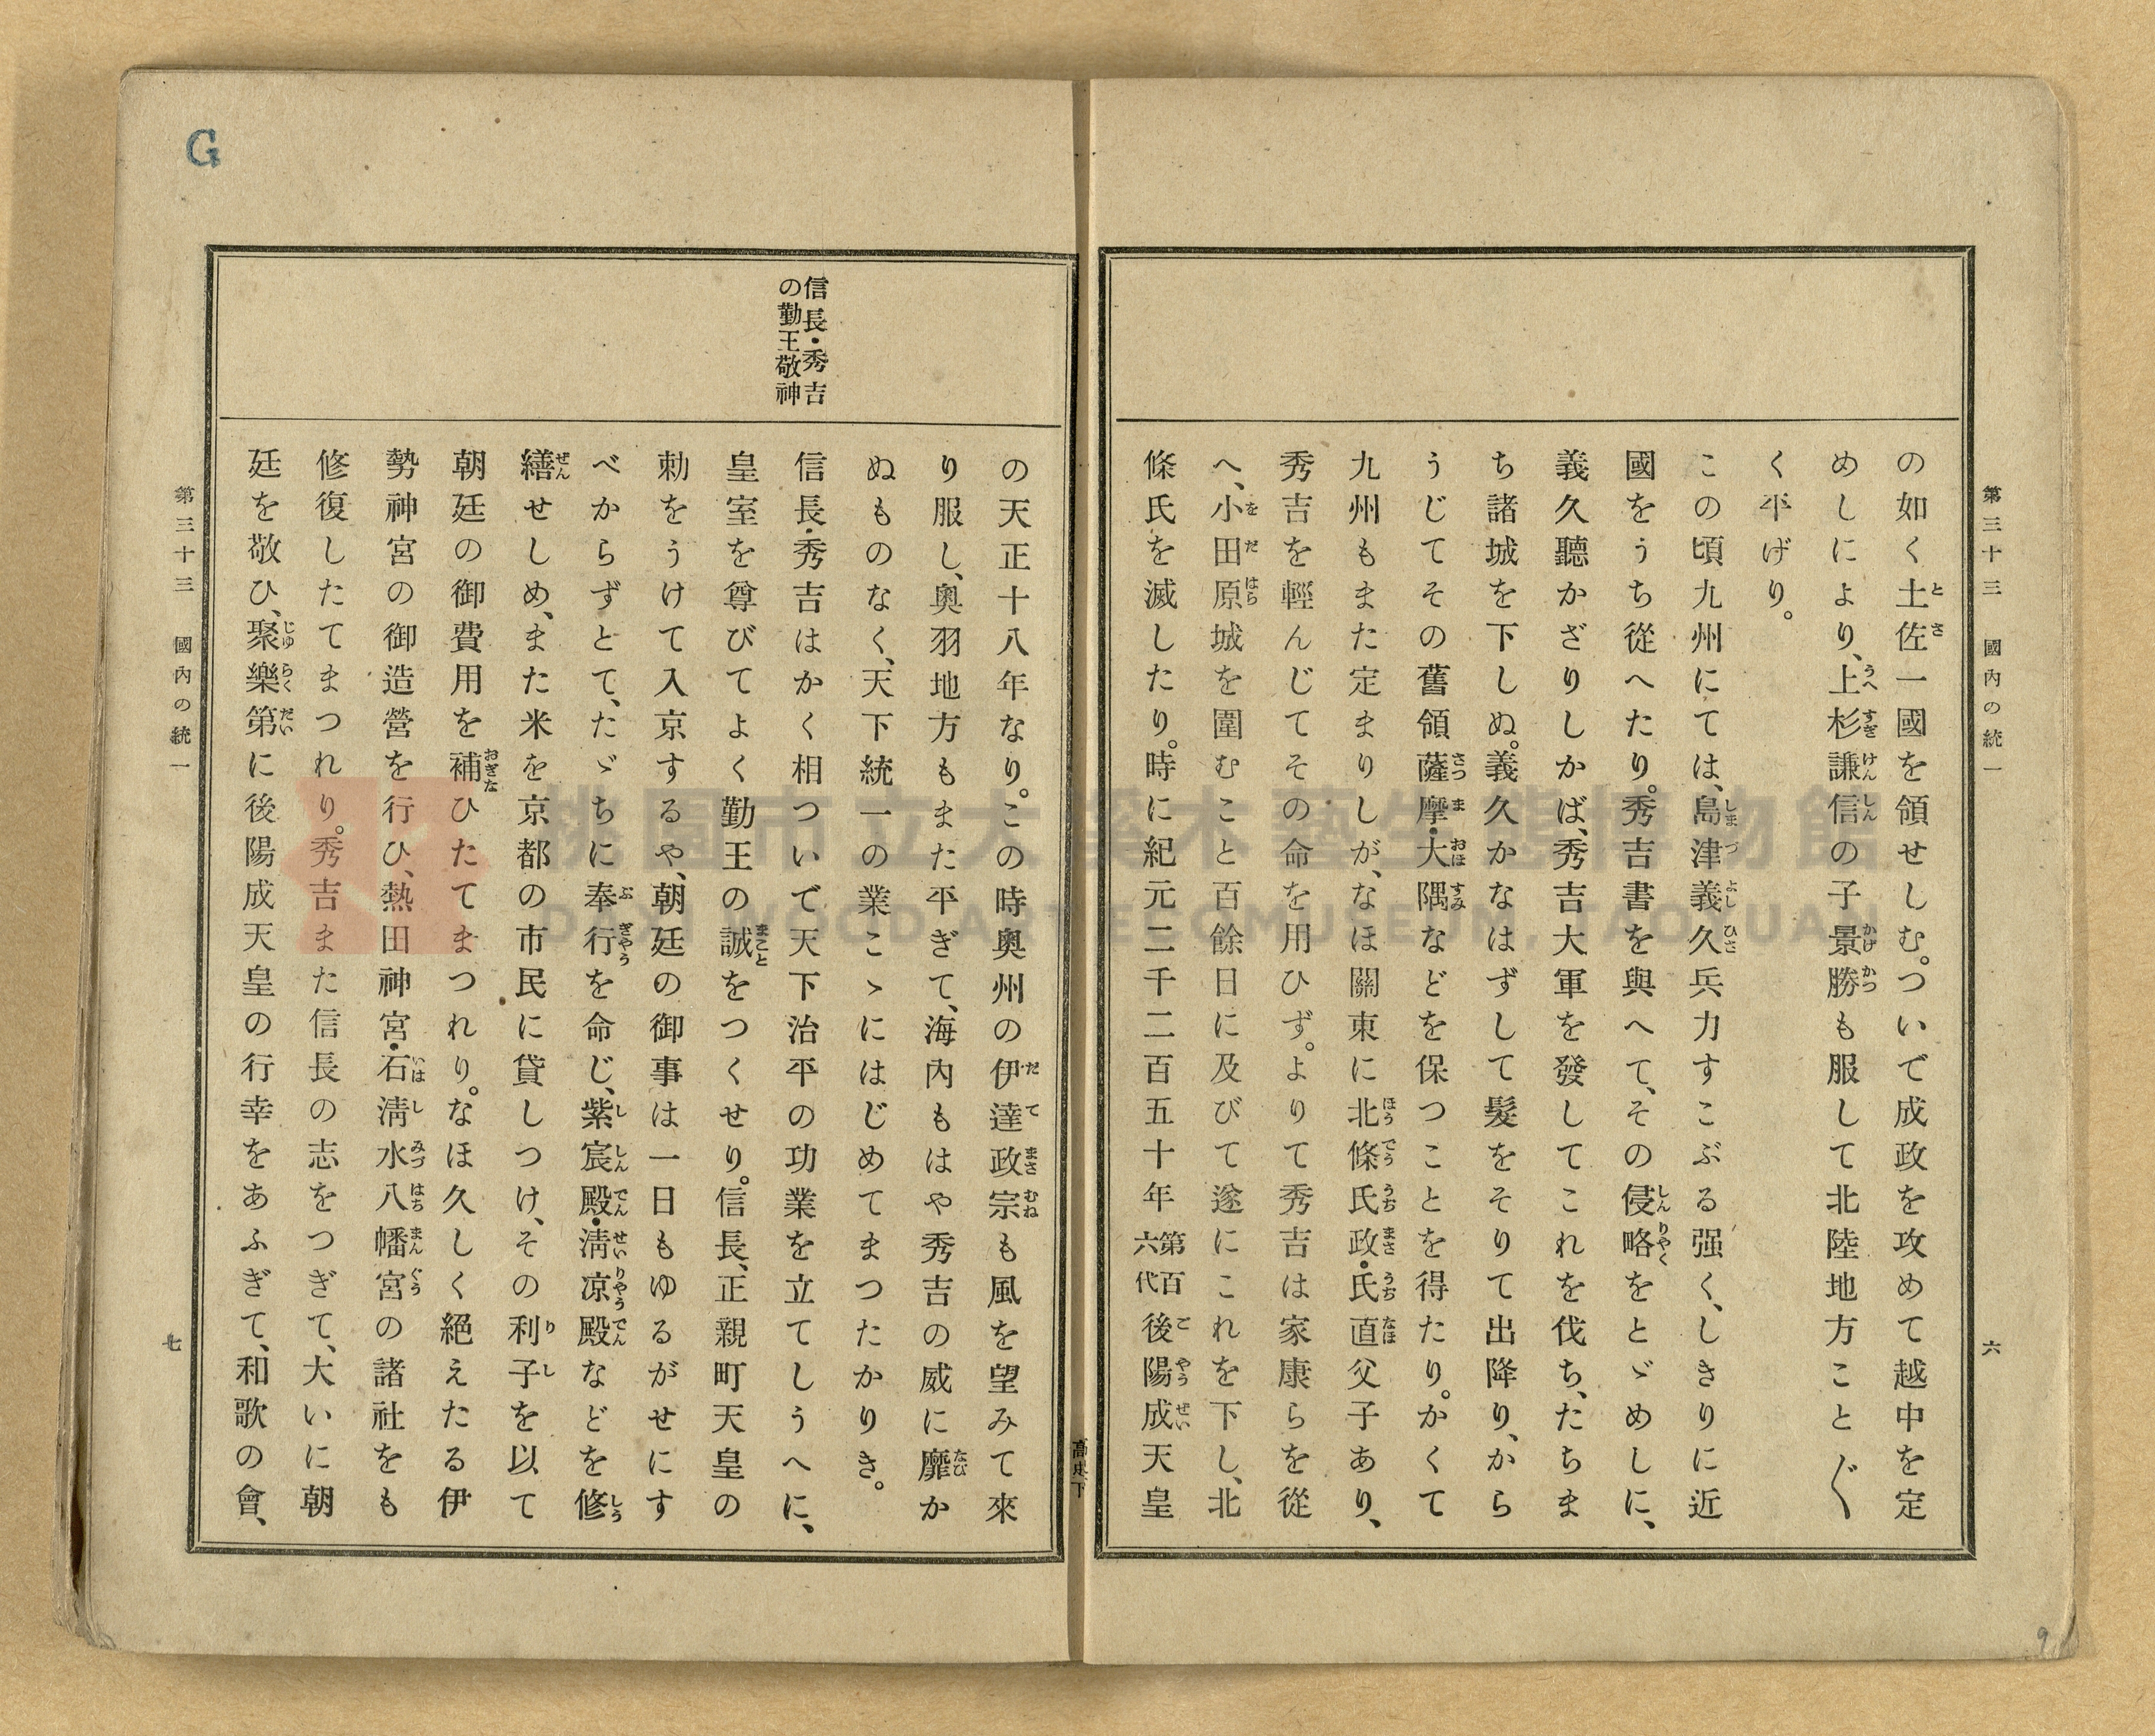 第三十三　國內の統一
六
の如く土佐一國を領せしむ。ついで成政を攻めて越中を定
めしにより、上杉謙信の子景勝も服して北陸地方こと〴〵
く平げり。
この頃九州にては、島津義久兵力すこぶる强く、しきりに近
國をうち從へたり。秀吉書を與へて、その侵略をとゞめしに、
義久聽かざりしかば、秀吉大軍を發してこれを伐ち、たちま
ち諸城を下しぬ。義久かなはずして髮をそりて出降り、から
うじてその舊領薩摩・大隅などを保つことを得たり。かくて
九州もまた定まりしが、なほ關東に北條氏政・氏直父子あり、
秀吉を輕んじてその命を用ひず。よりて秀吉は家康らを從
へ、小田原城を圍むこと百餘日に及びて遂にこれを下し、北
條氏を滅したり。時に紀元二千二百五十年第百六代後陽成天皇
高史下
の天正十八年なり。この時奧州の伊達政宗も風を望みて來
り服し、奧羽地方もまた平ぎて、海內もはや秀吉の威に靡か
ぬものなく、天下統一の業こゝにはじめてまつたかりき。
信長・秀吉
の勤王敬神
信長・秀吉はかく相ついで天下治平の功業を立てしうへに、
皇室を尊びてよく勤王の誠をつくせり。信長、正親町天皇の
勅をうけて入京するや、朝廷の御事は一日もゆるがせにす
べからずとて、たゞちに奉行を命じ、紫宸殿・淸凉殿などを修
繕せしめ、また米を京都の市民に貸しつけ、その利子を以て
朝廷の御費用を補ひたてまつれり。なほ久しく絕えたる伊
勢神宮の御造營を行ひ、熱田神宮・石淸水八幡宮の諸社をも
修復したてまつれり。秀吉また信長の志をつぎて、大いに朝
廷を敬ひ、聚樂第に後陽成天皇の行幸をあふぎて、和歌の會、
第三十三　國內の統一
七
G
9
桃園市立大溪木藝生態博物館
DAXI WOOD ART ECOMUSEUM, TAOYUAN